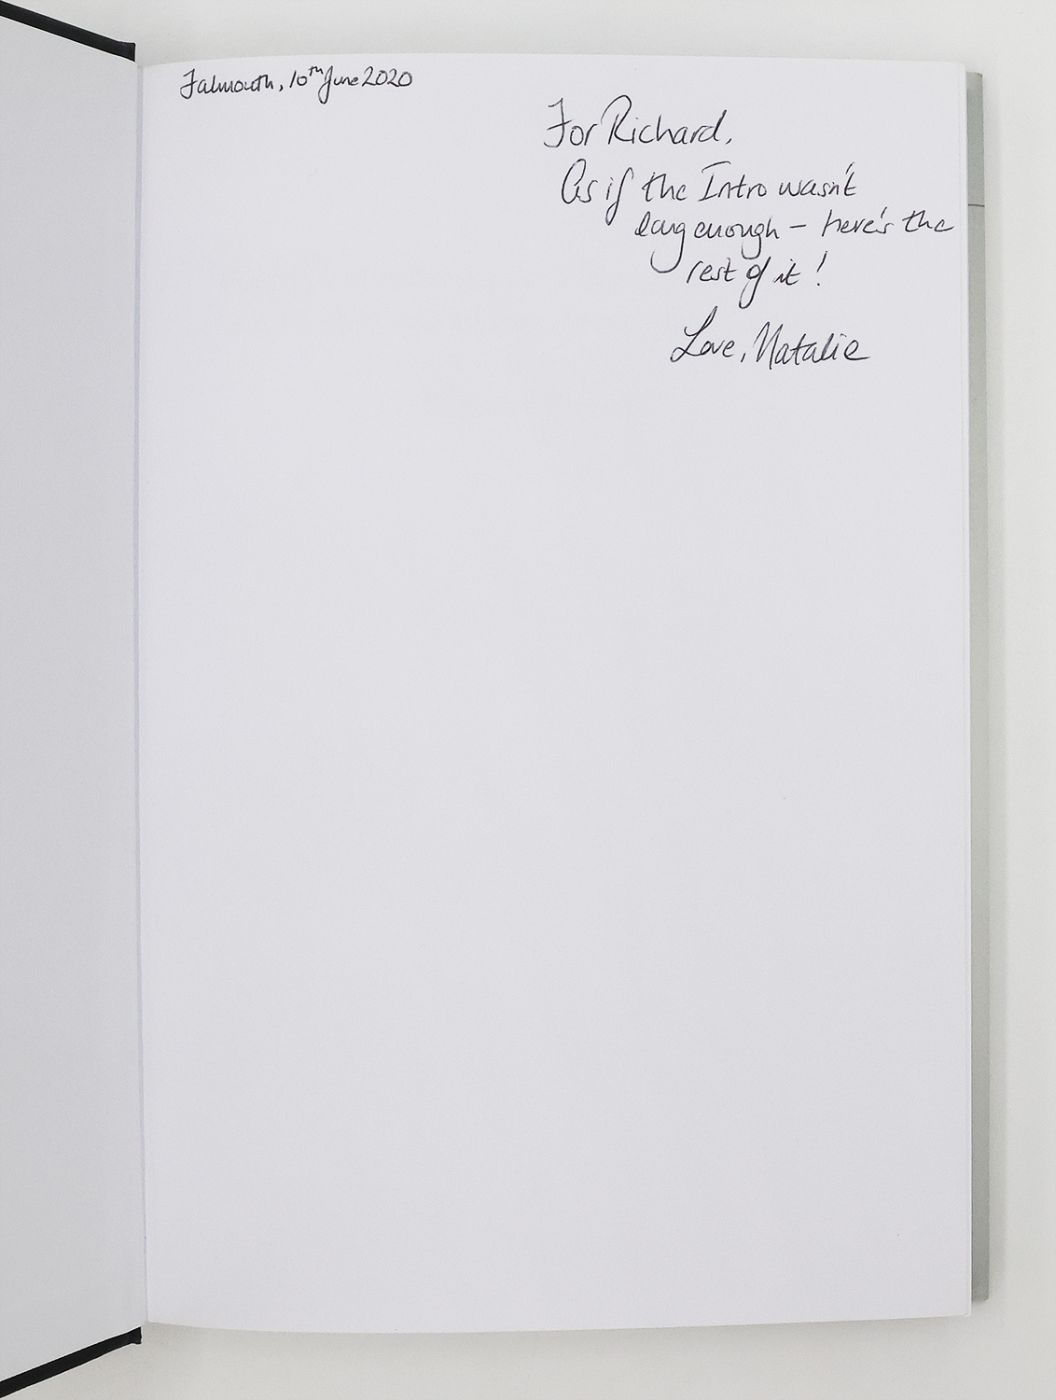 Falmouth, 10th June 2020
For Richard,
As if the Intro wasn't
long enough – here's the
rest of it!
Love, Natalie